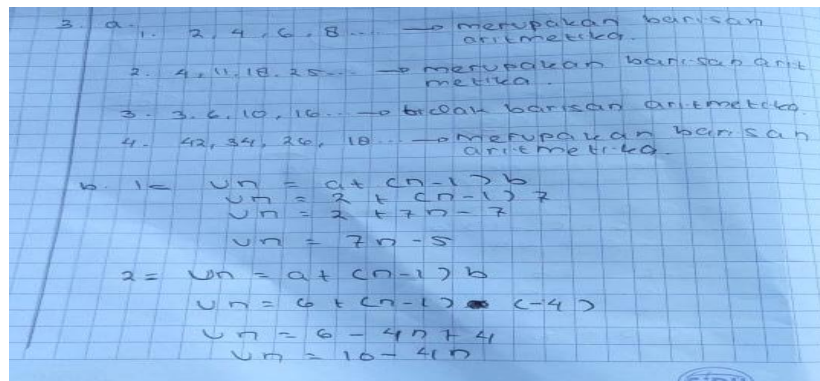 3. a.
1. 2, 4, 6, 8 ... → merupakan barisan
aritmetika.
2. 4, 11, 18, 25 ... → merupakan barisan arit
metika.
3. 3, 6, 10, 16 ... → tidak barisan aritmetika.
4. 42, 34, 26, 18 ... → merupakan barisan
aritmetika.
b. 1= Un = a + (n-1) b
Un = 2 + (n-1) 7
Un = 2 + 7n - 7
Un = 7n - 5
2 = Un = a + (n-1) b
Un = 6 + (n-1) (-4)
Un = 6 - 4n + 4
Un = 10 - 4n